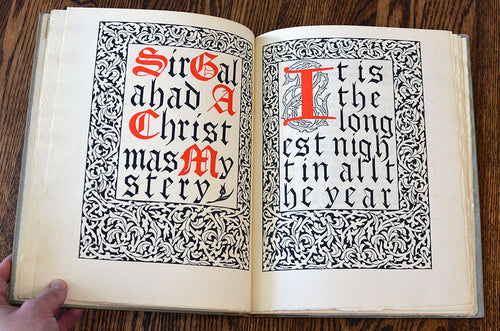 Sir Gal
ahad A
Christ
mas My
stery
It is
the
long
est nigh
t in all t
he year